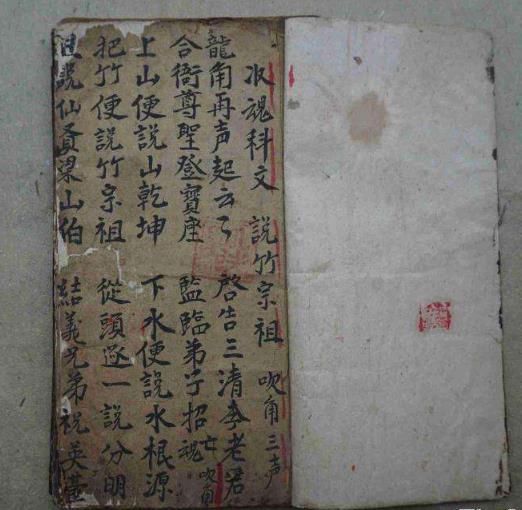 收魂科文 說竹宗祖 吹角三声
龍角再声起云了 啓告三清李老君
合衙尊聖登寶座 監臨弟子招魂亡 吹角
上山便說山乾坤 下水便說水根源
把竹便說竹宗祖 從頭逐一說分明
且說仙賢梁山伯 結義兄弟祝英臺